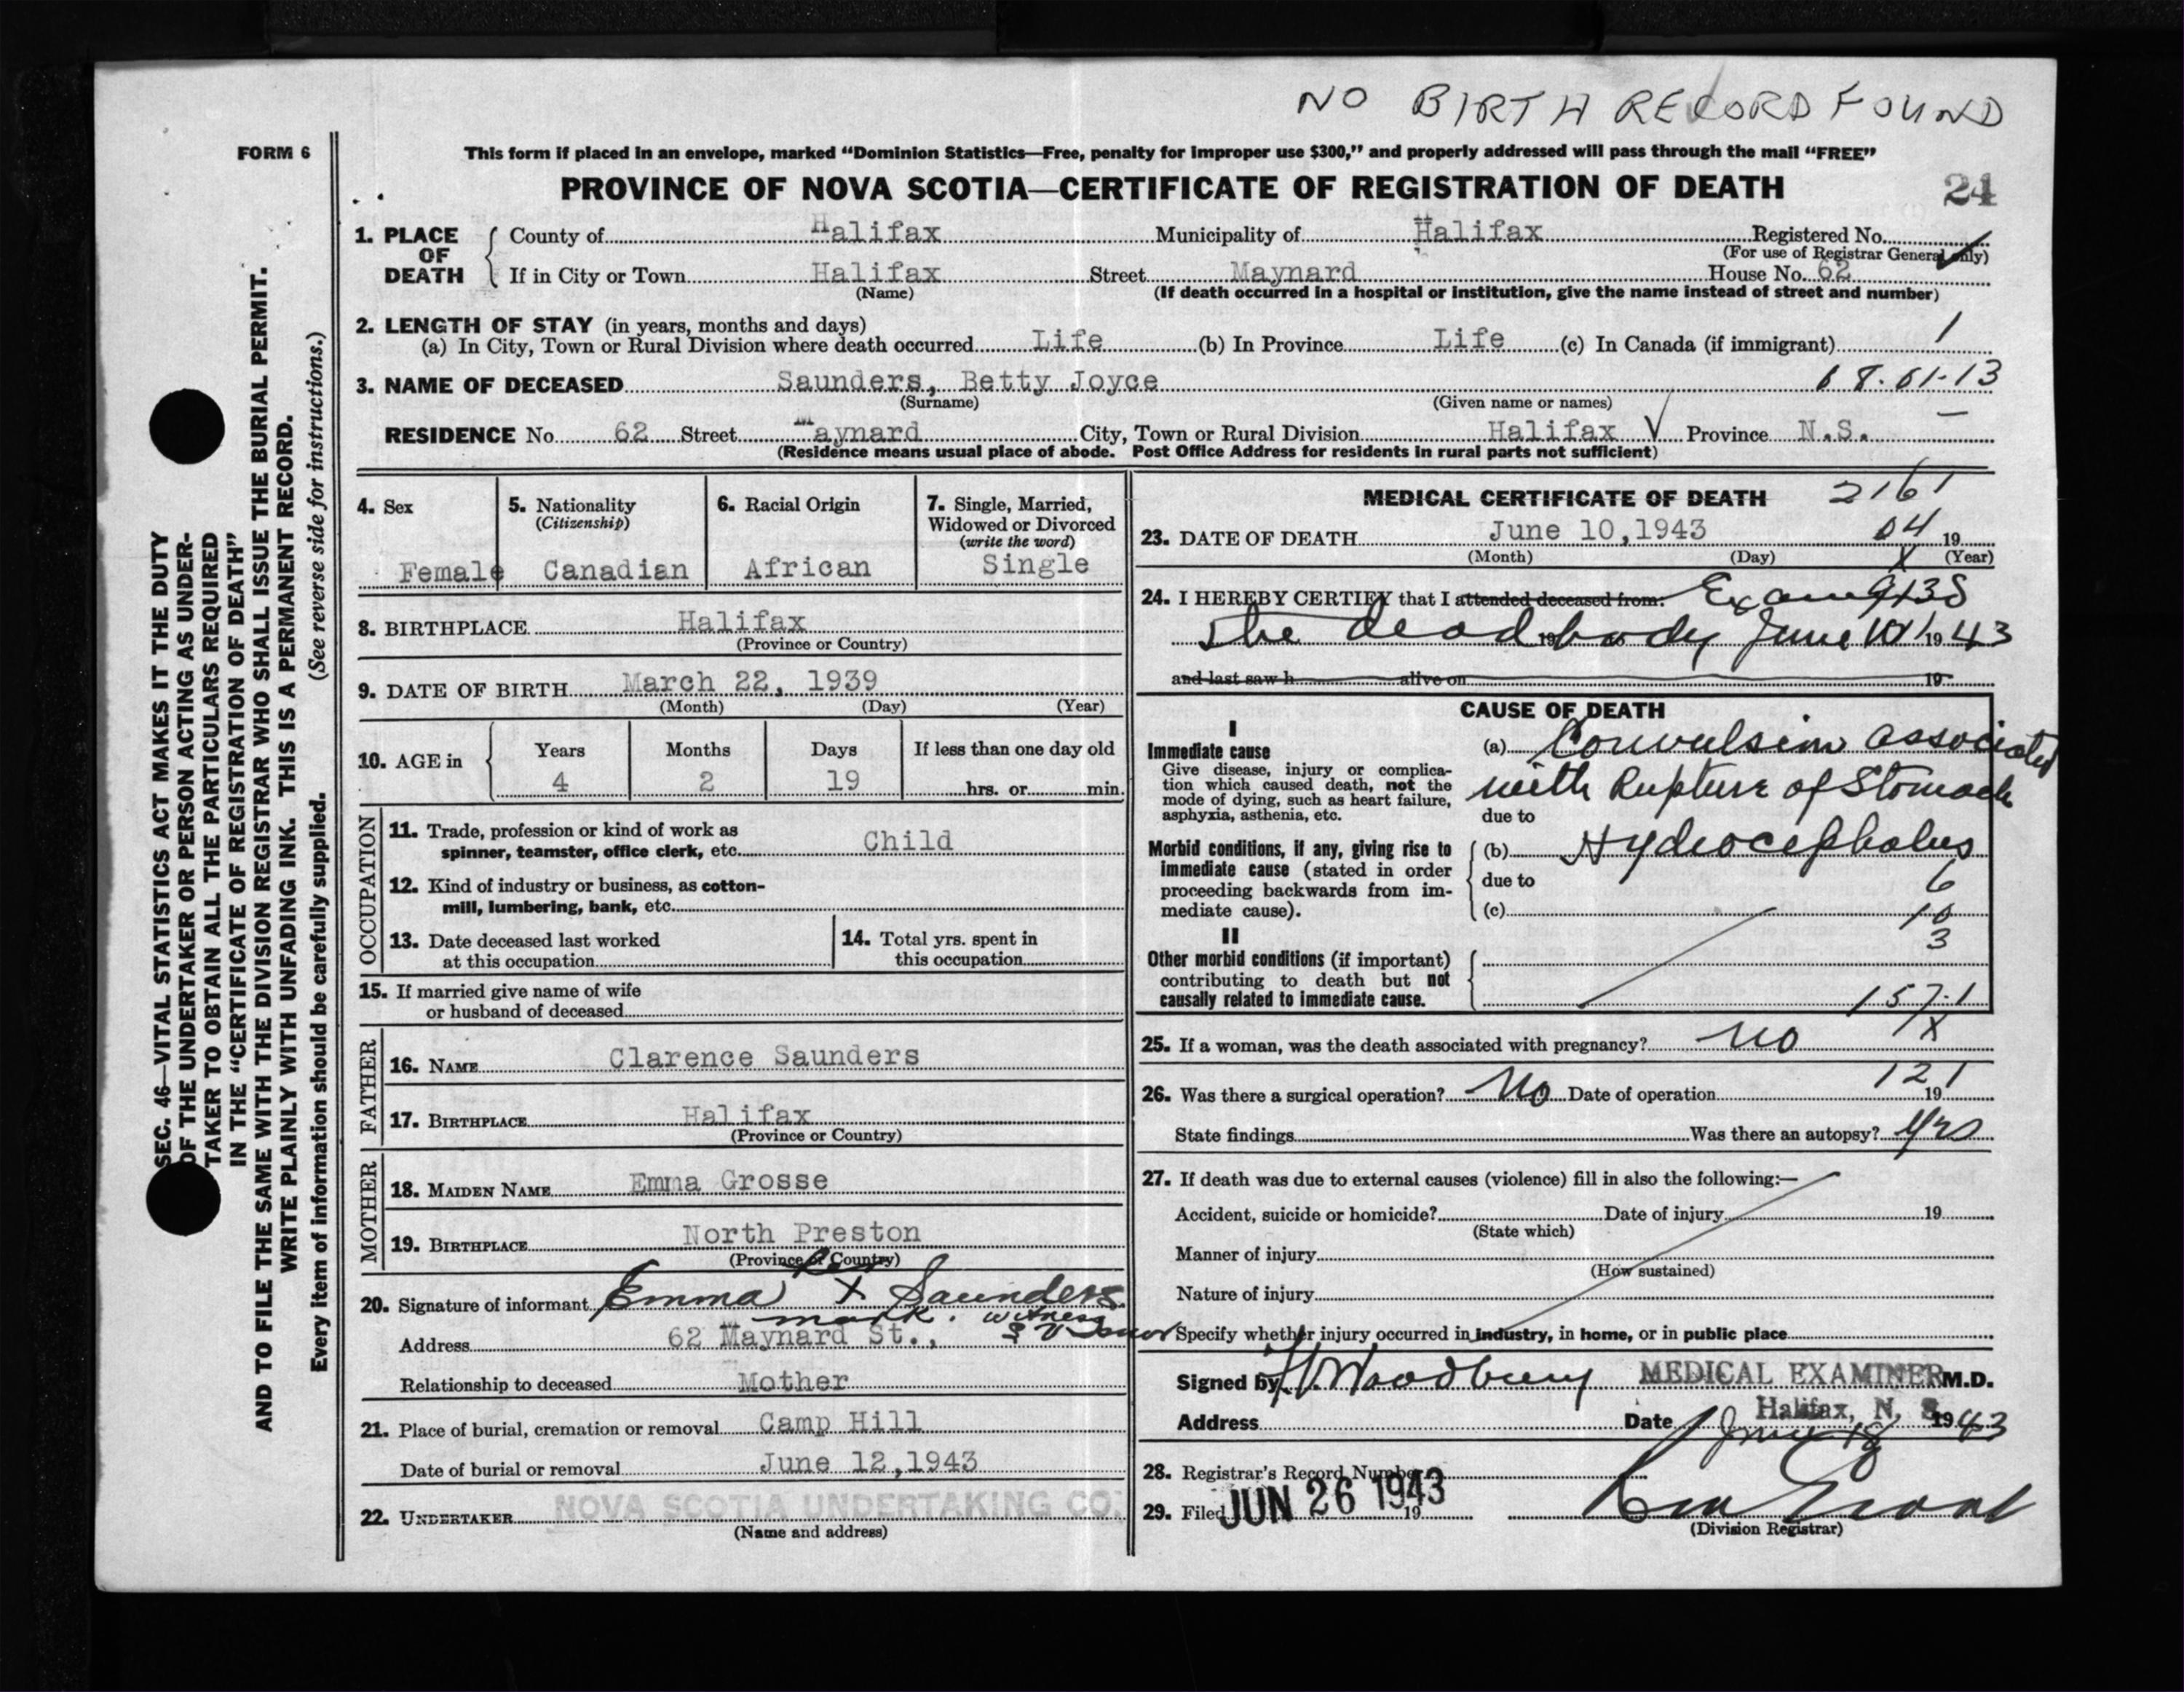 NO BIRTH RECORD FOUND
FORM 6
This form if placed in an envelope, marked “Dominion Statistics—Free, penalty for improper use $300,” and properly addressed will pass through the mail “FREE”
PROVINCE OF NOVA SCOTIA—CERTIFICATE OF REGISTRATION OF DEATH
24
1. PLACE OF DEATH
County of Halifax Municipality of Halifax Registered No.
(For use of Registrar General only)
If in City or Town Halifax Street Maynard House No. 62
(Name) (If death occurred in a hospital or institution, give the name instead of street and number)
2. LENGTH OF STAY (in years, months and days)
(a) In City, Town or Rural Division where death occurred Life (b) In Province Life (c) In Canada (if immigrant) 1
3. NAME OF DECEASED Saunders, Betty Joyce
(Surname) (Given name or names)
RESIDENCE No. 62 Street Maynard City, Town or Rural Division Halifax Province N.S.
(Residence means usual place of abode. Post Office Address for residents in rural parts not sufficient)
SEC. 46—VITAL STATISTICS ACT MAKES IT THE DUTY
OF THE UNDERTAKER OR PERSON ACTING AS UNDER-
TAKER TO OBTAIN ALL THE PARTICULARS REQUIRED
IN THE “CERTIFICATE OF REGISTRATION OF DEATH”
AND TO FILE THE SAME WITH THE DIVISION REGISTRAR WHO SHALL ISSUE THE BURIAL PERMIT.
WRITE PLAINLY WITH UNFADING INK. THIS IS A PERMANENT RECORD.
Every item of information should be carefully supplied. (See reverse side for instructions.)
4. Sex
Female
5. Nationality
(Citizenship)
Canadian
6. Racial Origin
African
7. Single, Married,
Widowed or Divorced
(write the word)
Single
8. BIRTHPLACE Halifax
(Province or Country)
9. DATE OF BIRTH March 22, 1939
(Month) (Day) (Year)
10. AGE in Years Months Days If less than one day old
4 2 19 hrs. or min.
OCCUPATION
11. Trade, profession or kind of work as
spinner, teamster, office clerk, etc. Child
12. Kind of industry or business, as cotton-
mill, lumbering, bank, etc.
13. Date deceased last worked
at this occupation
14. Total yrs. spent in
this occupation
15. If married give name of wife
or husband of deceased
FATHER
16. NAME Clarence Saunders
17. BIRTHPLACE Halifax
(Province or Country)
MOTHER
18. MAIDEN NAME Emma Grosse
19. BIRTHPLACE North Preston
(Province or Country)
her
20. Signature of informant Emma X Saunders
mark. witness
Address 62 Maynard St.,
Relationship to deceased Mother
21. Place of burial, cremation or removal Camp Hill
Date of burial or removal June 12,1943
22. UNDERTAKER NOVA SCOTIA UNDERTAKING CO.
(Name and address)
MEDICAL CERTIFICATE OF DEATH 2161
23. DATE OF DEATH June 10,1943 04 19
(Month) (Day) (Year)
24. I HEREBY CERTIFY that I attended deceased from:
the dead body June 19 43
and last saw h alive on 19
CAUSE OF DEATH
I
Immediate cause
Give disease, injury or complica-
tion which caused death, not the
mode of dying, such as heart failure,
asphyxia, asthenia, etc.
(a) Convulsion associated
with Rupture of Stomach
due to
Morbid conditions, if any, giving rise to
immediate cause (stated in order
proceeding backwards from im-
mediate cause).
(b) Hydrocephalus
due to 6
(c) 10
3
II
Other morbid conditions (if important)
contributing to death but not
causally related to immediate cause.
157.1
X
25. If a woman, was the death associated with pregnancy? No
121
26. Was there a surgical operation? No Date of operation 19
State findings Was there an autopsy? Yes
27. If death was due to external causes (violence) fill in also the following:—
Accident, suicide or homicide? Date of injury 19
(State which)
Manner of injury
(How sustained)
Nature of injury
Specify whether injury occurred in industry, in home, or in public place
Signed by Woodbury MEDICAL EXAMINER M.D.
Address Halifax, N. S.
Date June 18 1943
28. Registrar's Record Number
29. Filed JUN 26 1943 19
(Division Registrar)